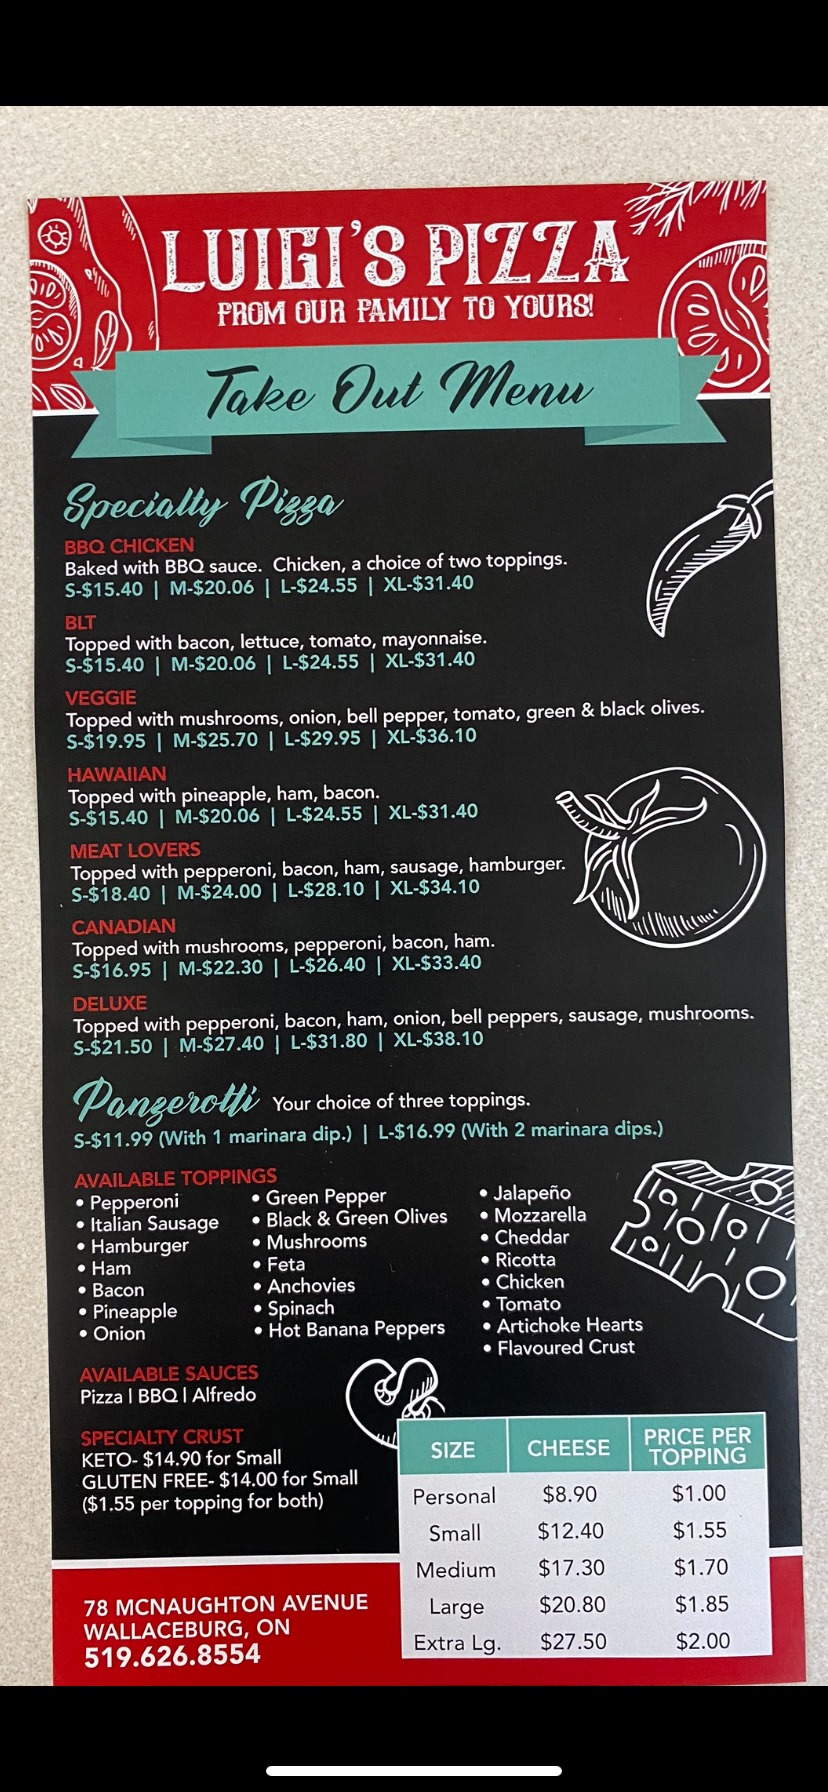 LUIGI'S PIZZA
FROM OUR FAMILY TO YOURS!
Take Out Menu
Specialty Pizza
BBQ CHICKEN
Baked with BBQ sauce. Chicken, a choice of two toppings.
S-$15.40 | M-$20.06 | L-$24.55 | XL-$31.40
BLT
Topped with bacon, lettuce, tomato, mayonnaise.
S-$15.40 | M-$20.06 | L-$24.55 | XL-$31.40
VEGGIE
Topped with mushrooms, onion, bell pepper, tomato, green & black olives.
S-$19.95 | M-$25.70 | L-$29.95 | XL-$36.10
HAWAIIAN
Topped with pineapple, ham, bacon.
S-$15.40 | M-$20.06 | L-$24.55 | XL-$31.40
MEAT LOVERS
Topped with pepperoni, bacon, ham, sausage, hamburger.
S-$18.40 | M-$24.00 | L-$28.10 | XL-$34.10
CANADIAN
Topped with mushrooms, pepperoni, bacon, ham.
S-$16.95 | M-$22.30 | L-$26.40 | XL-$33.40
DELUXE
Topped with pepperoni, bacon, ham, onion, bell peppers, sausage, mushrooms.
S-$21.50 | M-$27.40 | L-$31.80 | XL-$38.10
Panzerotti Your choice of three toppings.
S-$11.99 (With 1 marinara dip.) | L-$16.99 (With 2 marinara dips.)
AVAILABLE TOPPINGS
• Pepperoni
• Italian Sausage
• Hamburger
• Ham
• Bacon
• Pineapple
• Onion
• Green Pepper
• Black & Green Olives
• Mushrooms
• Feta
• Anchovies
• Spinach
• Hot Banana Peppers
• Jalapeño
• Mozzarella
• Cheddar
• Ricotta
• Chicken
• Tomato
• Artichoke Hearts
• Flavoured Crust
AVAILABLE SAUCES
Pizza | BBQ | Alfredo
SPECIALTY CRUST
KETO- $14.90 for Small
GLUTEN FREE- $14.00 for Small
($1.55 per topping for both)
SIZE CHEESE PRICE PER TOPPING
Personal $8.90 $1.00
Small $12.40 $1.55
Medium $17.30 $1.70
Large $20.80 $1.85
Extra Lg. $27.50 $2.00
78 MCNAUGHTON AVENUE
WALLACEBURG, ON
519.626.8554